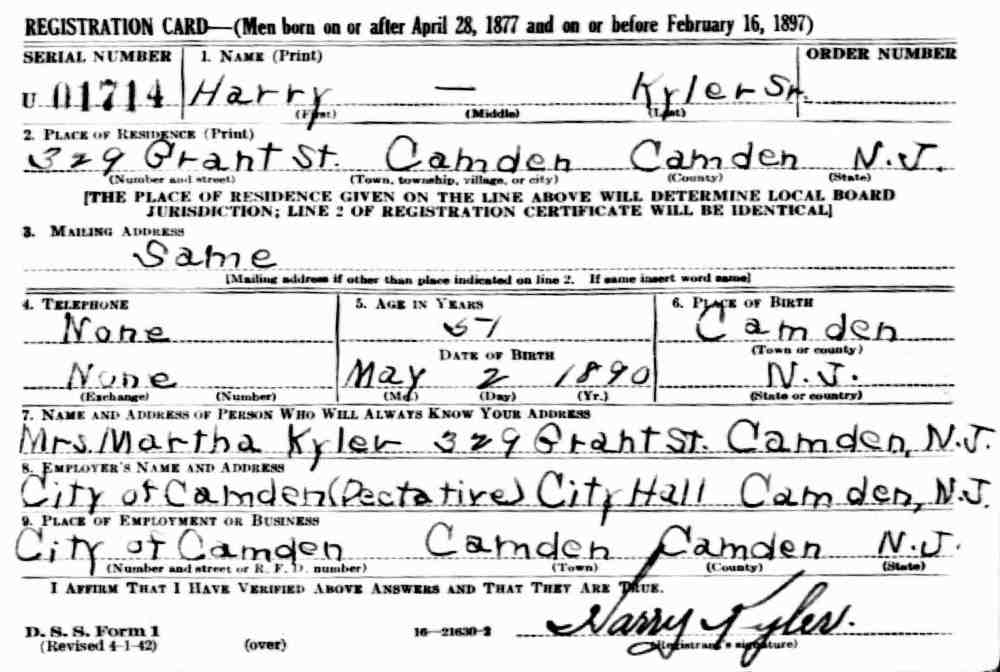 REGISTRATION CARD—(Men born on or after April 28, 1877 and on or before February 16, 1897)
SERIAL NUMBER 1. NAME (Print) ORDER NUMBER
U 01714 Harry — Kyler Sr.
(First) (Middle) (Last)
2. PLACE OF RESIDENCE (Print)
329 Grant St. Camden Camden N.J.
(Number and street) (Town, township, village, or city) (County) (State)
[THE PLACE OF RESIDENCE GIVEN ON THE LINE ABOVE WILL DETERMINE LOCAL BOARD
JURISDICTION; LINE 2 OF REGISTRATION CERTIFICATE WILL BE IDENTICAL]
3. MAILING ADDRESS
Same
[Mailing address if other than place indicated on line 2. If same insert word same]
4. TELEPHONE 5. AGE IN YEARS 6. PLACE OF BIRTH
None 51 Camden
DATE OF BIRTH (Town or county)
None May 2 1890 N.J.
(Exchange) (Number) (Mo.) (Day) (Yr.) (State or country)
7. NAME AND ADDRESS OF PERSON WHO WILL ALWAYS KNOW YOUR ADDRESS
Mrs. Martha Kyler 329 Grant St. Camden, N.J.
8. EMPLOYER'S NAME AND ADDRESS
City of Camden (Dectative) City Hall Camden, N.J.
9. PLACE OF EMPLOYMENT OR BUSINESS
City of Camden Camden Camden N.J.
(Number and street or R. F. D. number) (Town) (County) (State)
I AFFIRM THAT I HAVE VERIFIED ABOVE ANSWERS AND THAT THEY ARE TRUE.
Harry Kyler.
D. S. S. Form 1 16—21630-2
(Revised 4-1-42) (over) (Registrant's signature)